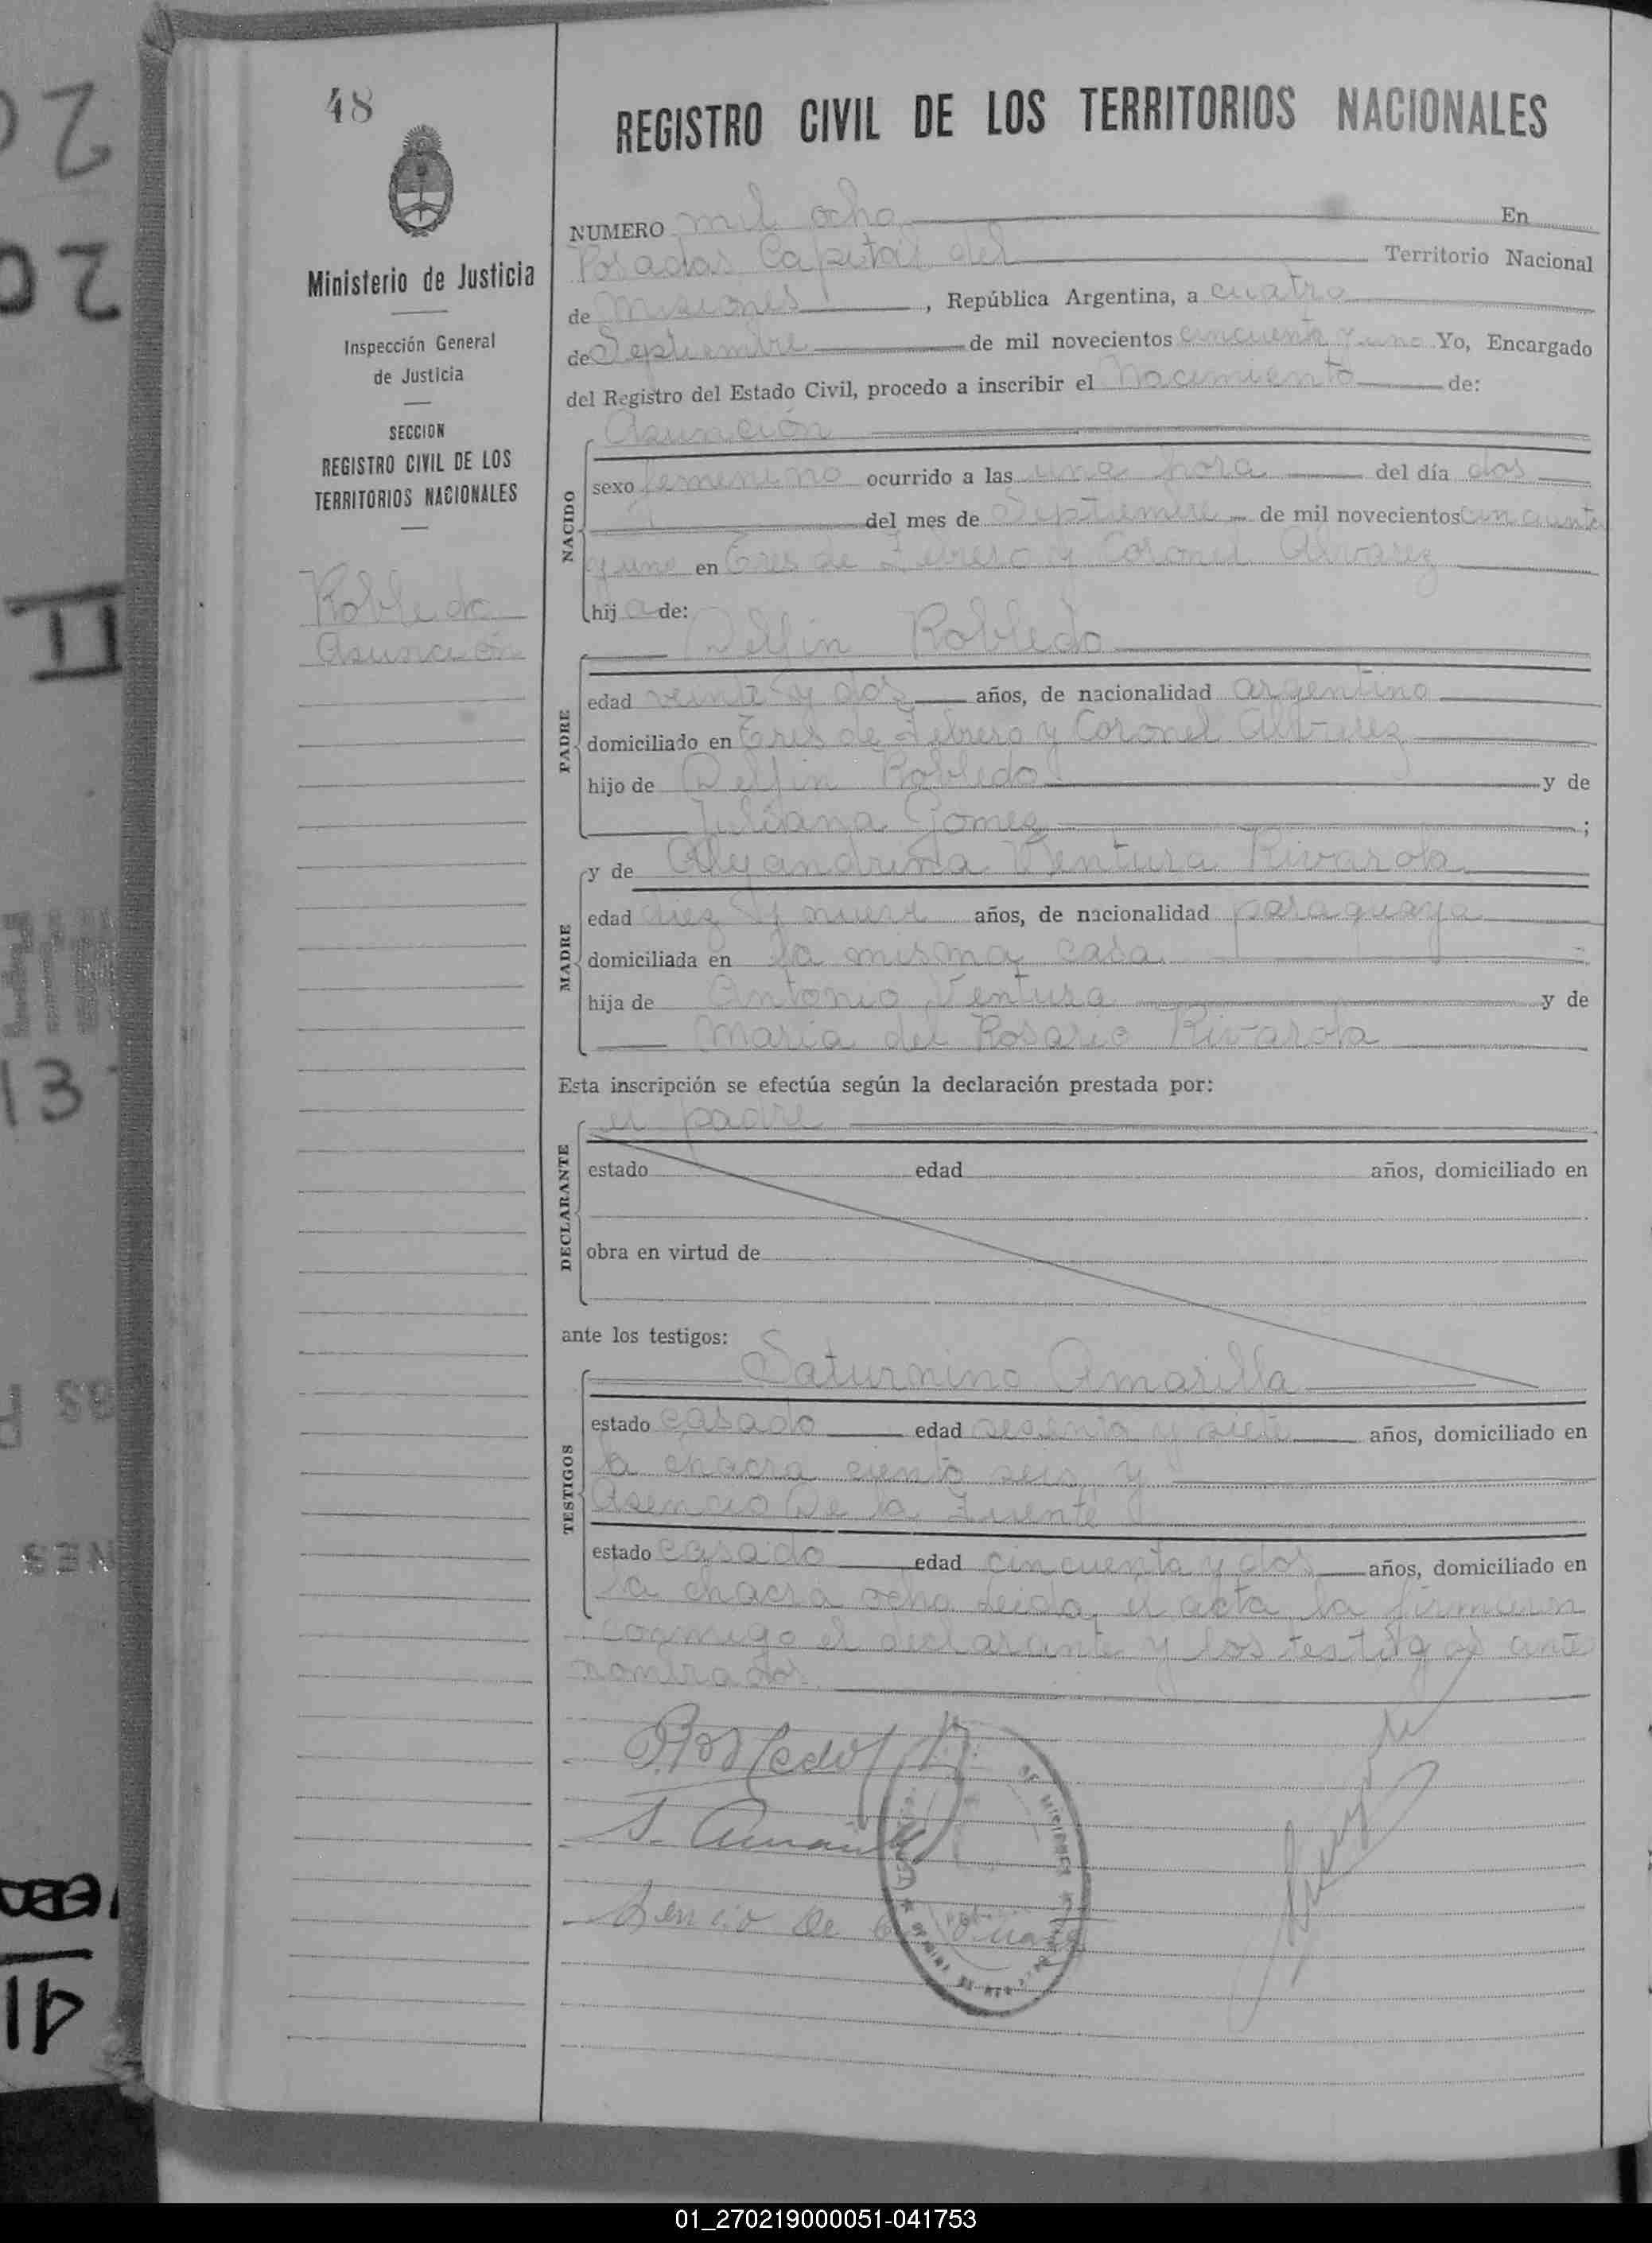 48
REGISTRO CIVIL DE LOS TERRITORIOS NACIONALES
Ministerio de Justicia
Inspección General
de Justicia
SECCION
REGISTRO CIVIL DE LOS
TERRITORIOS NACIONALES
Robledo
Asunción
NUMERO mil ocho En
Posadas Capital del Territorio Nacional
de Misiones, República Argentina, a cuatro
de Septiembre de mil novecientos cincuenta y uno Yo, Encargado
del Registro del Estado Civil, procedo a inscribir el Nacimiento de:
NACIDO
Asunción
sexo femenino ocurrido a las una hora del día dos
del mes de Septiembre de mil novecientos cincuenta
y uno en Tres de Febrero y Coronel Alvarez
hij a de:
PADRE
Delfin Robledo
edad veinte y dos años, de nacionalidad argentino
domiciliado en Tres de Febrero y Coronel Alvarez
hijo de Delfin Robledo y de
Juliana Gomez ;
MADRE
y de Alejandrina Ventura Rivarola
edad diez y nueve años, de nacionalidad paraguaya
domiciliada en la misma casa
hija de Antonio Ventura y de
Maria del Rosario Rivarola
Esta inscripción se efectúa según la declaración prestada por:
DECLARANTE
el padre
estado edad años, domiciliado en
obra en virtud de
ante los testigos:
TESTIGOS
Saturnino Amarilla
estado casado edad sesenta y siete años, domiciliado en
la chacra ciento seis y
Asencio De la Fuente
estado casado edad cincuenta y dos años, domiciliado en
la chacra ocho Leida el acta la firmaron
conmigo el declarante y los testigos ante
nombrados.
Robledo D.
S. Amarilla
Asencio De la Fuente
01_270219000051-041753